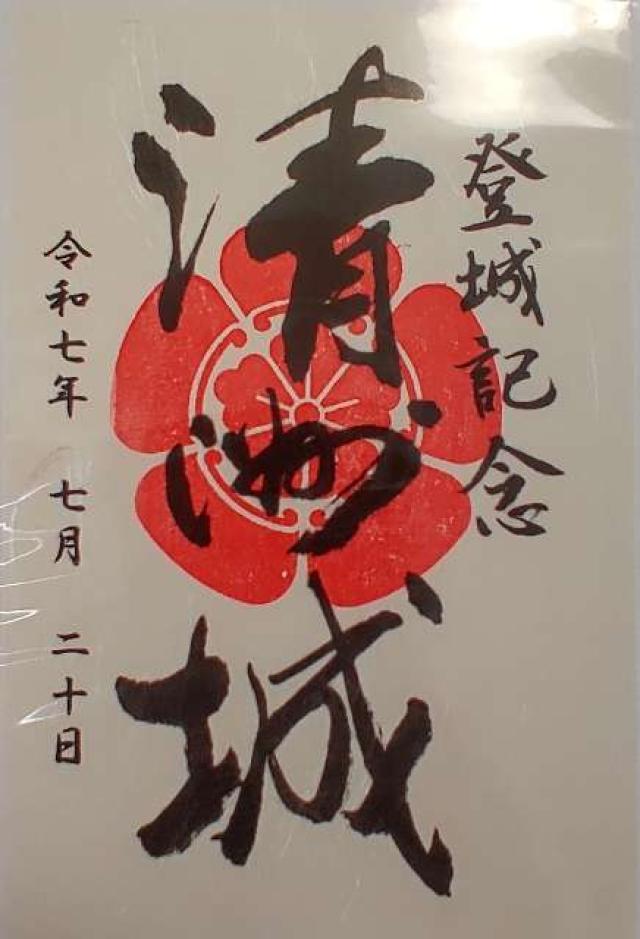 登城記念
清洲城
令和七年 七月 二十日